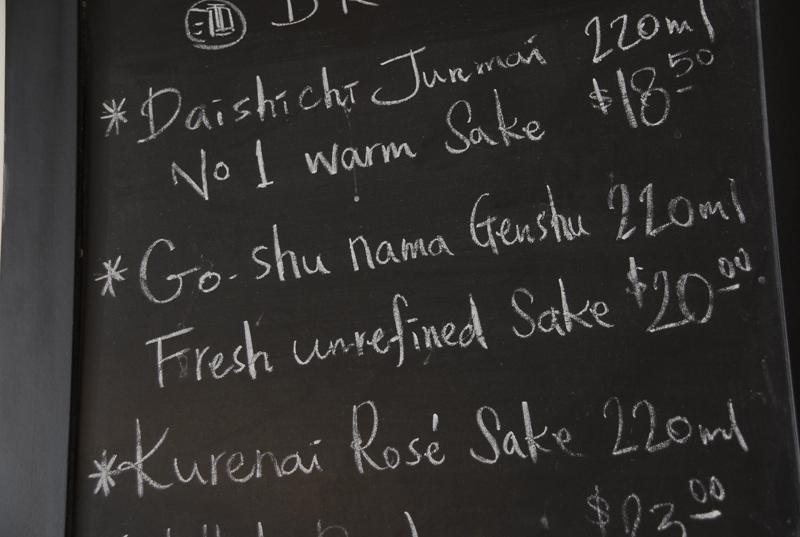 * Daishichi Junmai 220ml
No 1 warm Sake $18.50
* Go-shu nama Genshu 220ml
Fresh unrefined Sake $20.00
* Kurenai Rosé Sake 220ml
$23.00